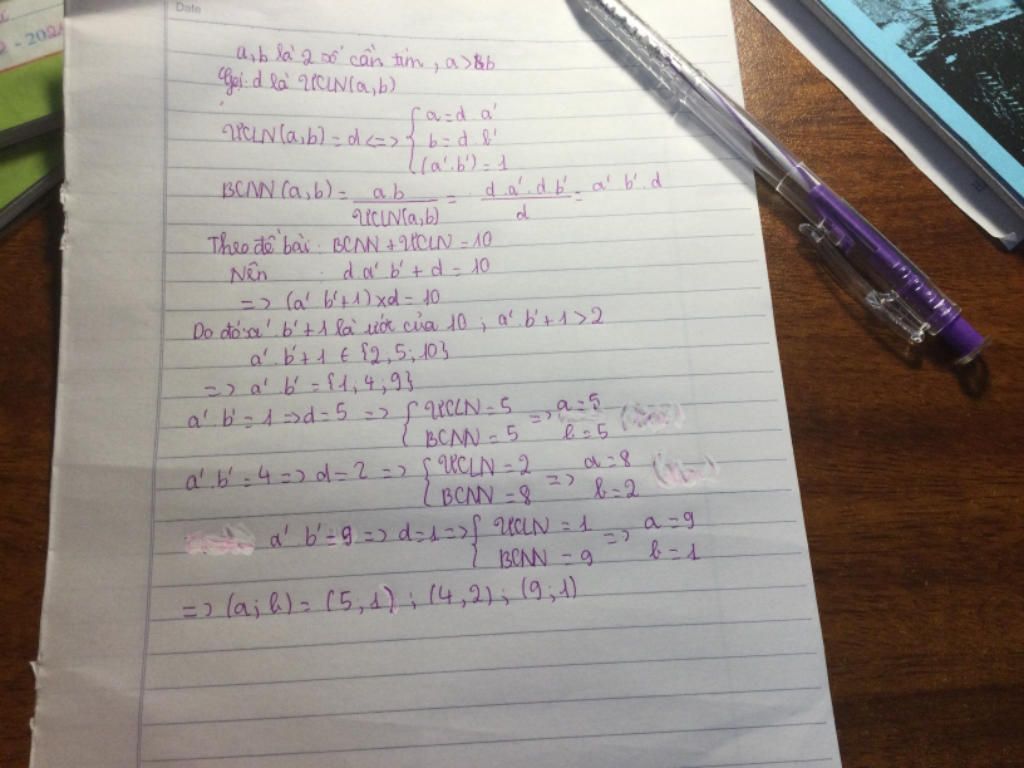 Date
a, b là 2 số cần tìm, a > b
Gọi d là ƯCLN(a,b)
ƯCLN(a,b) = d <=> { a = d a'
b = d b'
(a'.b') = 1
BCNN(a,b) = a.b / ƯCLN(a,b) = d.a'.d.b' / d = a' b'.d
Theo đề bài: BCNN + ƯCLN = 10
Nên : d a' b' + d = 10
=> (a' b'+1)xd = 10
Do đó: a' b'+1 là ước của 10 ; a'.b'+1 > 2
a' b'+1 ∈ {2, 5; 10}
=> a' b' = {1, 4; 9}
a' b' = 1 => d = 5 => { ƯCLN = 5 => a = 5
BCNN = 5 b = 5
a'.b' = 4 => d = 2 => { ƯCLN = 2 => a = 8
BCNN = 8 b = 2
a' b' = 9 => d = 1 => { ƯCLN = 1 => a = 9
BCNN = 9 b = 1
=> (a; b) = (5, 1) ; (4, 2) ; (9; 1)